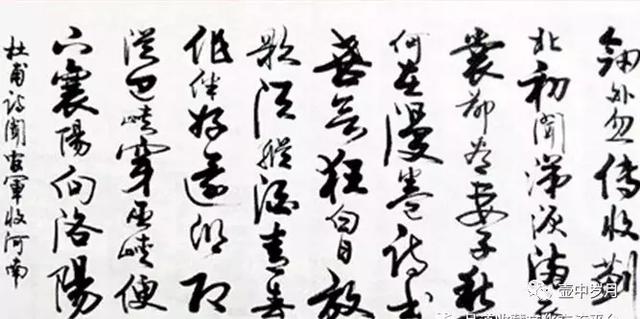 劍外忽傳收薊
北初聞涕淚滿衣
裳却看妻子愁
何在漫卷詩書
喜欲狂白日放
歌須縱酒青春
作伴好還鄉即
從巴峽穿巫峽便
下襄陽向洛陽
杜甫詩聞官軍收河南
壶中岁月